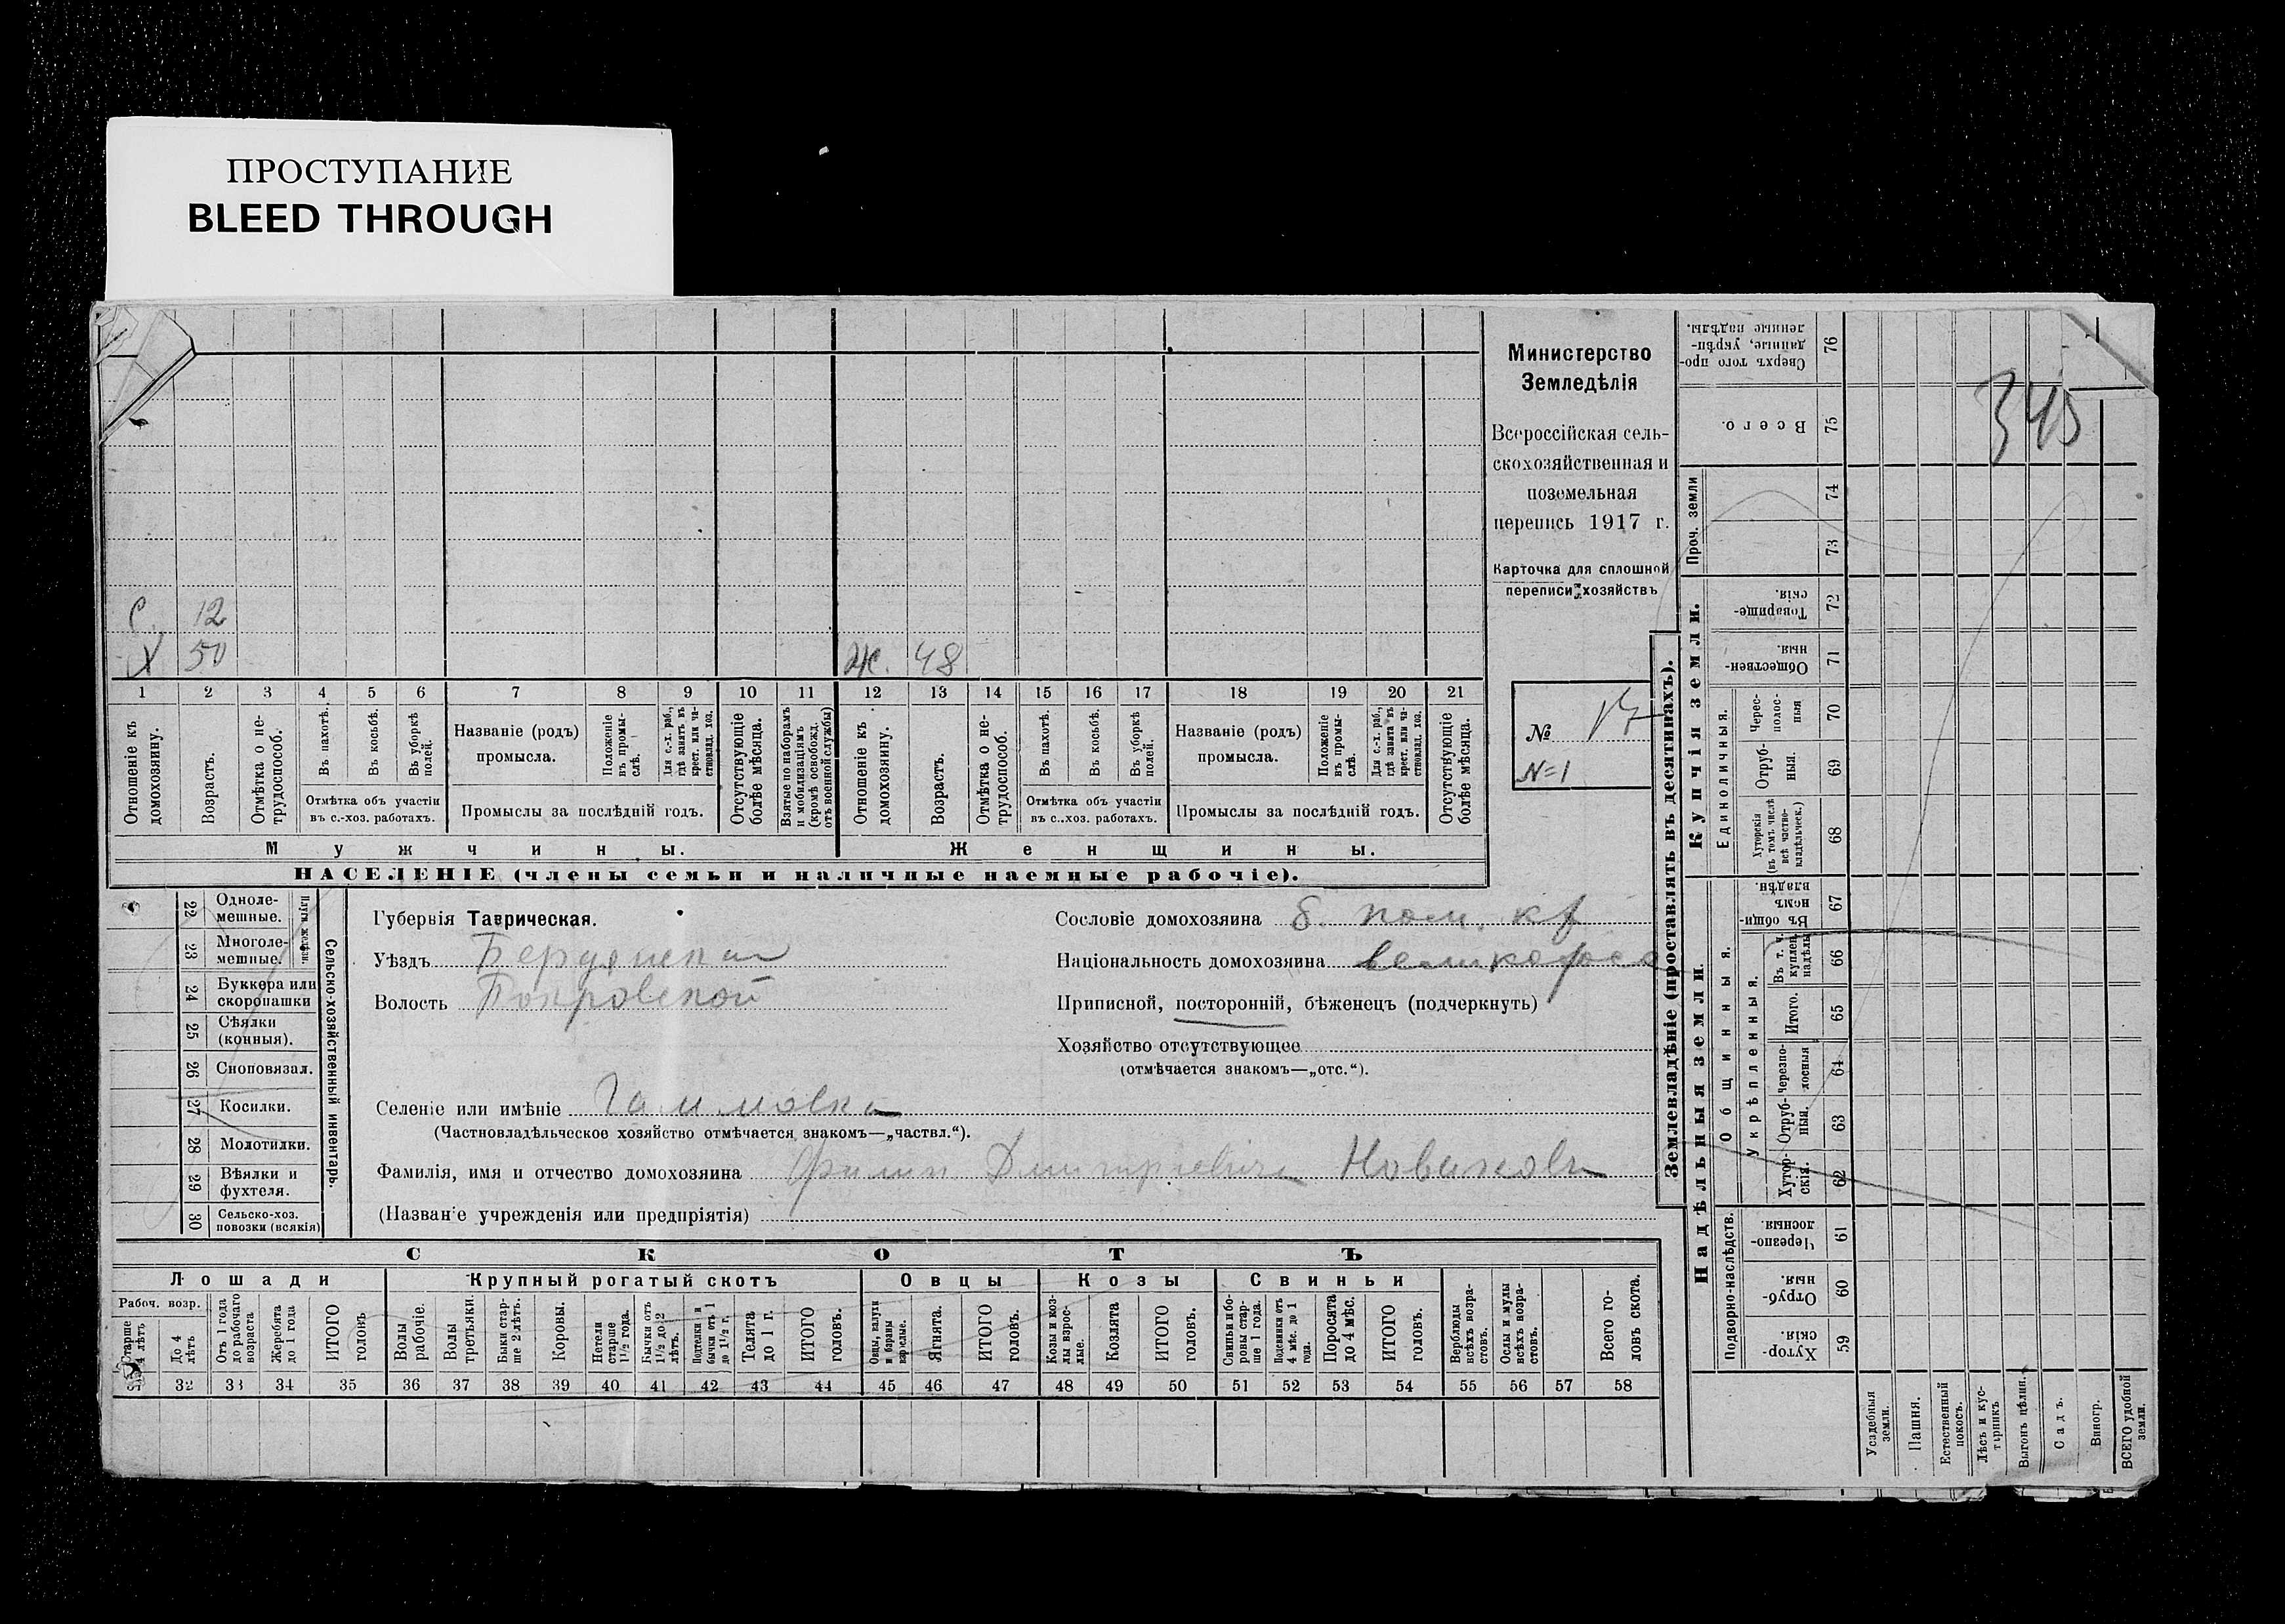 ПРОСТУПАНИЕ
BLEED THROUGH
Министерство
Земледѣлія
Всероссійская сель-
скохозяйственная и
поземельная
перепись 1917 г.
Карточка для сплошной
переписи хозяйствъ
345
С. 12
Х 50 Ж. 48
1 2 3 4 5 6 7 8 9 10 11 12 13 14 15 16 17 18 19 20 21
Отношеніе къ домохозяину.
Возрастъ.
Отмѣтка о не-трудоспособ.
Въ пахотѣ.
Въ косьбѣ.
Въ уборкѣ полей.
Отмѣтка объ участіи
въ с.-хоз. работахъ.
Названіе (родъ)
промысла.
Положеніе въ промы-слѣ.
Для с.-х. раб., гдѣ занятъ въ крест. или ча-стновлад. хоз.
Промыслы за послѣдній годъ.
Отсутствующіе болѣе мѣсяца.
Взятые по наборамъ и мобилизаціямъ (кромѣ освобожд. отъ военной службы)
Отношеніе къ домохозяину.
Возрастъ.
Отмѣтка о не-трудоспособ.
Въ пахотѣ.
Въ косьбѣ.
Въ уборкѣ полей.
Отмѣтка объ участіи
въ с.-хоз. работахъ.
Названіе (родъ)
промысла.
Положеніе въ промы-слѣ.
Для с.-х. раб., гдѣ занята въ крест. или ча-стновлад. хоз.
Промыслы за послѣдній годъ.
Отсутствующіе болѣе мѣсяца.
Мужчины. Женщины.
НАСЕЛЕНІЕ (члены семьи и наличные наемные рабочіе).
№ 17
N=1
22 Одноле-мешные.
23 Многоле-мешные.
Плуги желѣзн.
24 Буккера или скоропашки
25 Сѣялки (конныя).
26 Сноповязал.
27 Косилки.
28 Молотилки.
29 Вѣялки и фухтеля.
30 Сельско-хоз. повозки (всякія)
Сельско-хозяйственный инвентарь.
Губернія Таврическая.
Уѣздъ Бердянскій
Волость Покровской
Сословіе домохозяина б. пом. кр
Національность домохозяина великоросс
Приписной, посторонній, бѣженецъ (подчеркнуть)
Хозяйство отсутствующее
(отмѣчается знакомъ—„отс.“).
Селеніе или имѣніе
(Частновладѣльческое хозяйство отмѣчается знакомъ—„частвл.“).
Фамилія, имя и отчество домохозяина Филип. Дмитріевичъ Новаковъ
(Названіе учрежденія или предпріятія)
СКОТЪ
Лошади Крупный рогатый скотъ Овцы Козы Свиньи
Рабоч. возр.
Старше 4 лѣтъ
До 4 лѣтъ
Отъ 1 года до рабочаго возраста
Жеребята до 1 года
ИТОГО головъ
Волы рабочіе.
Волы третьяки.
Быки стар-ше 2 лѣтъ.
Коровы.
Нетели старше 1 1/2 года.
Бычки отъ 1 1/2 до 2 лѣтъ.
Подтелки и бычки отъ 1 до 1 1/2 г.
Телята до 1 г.
ИТОГО головъ.
Овцы, валухи и бараны взрослые.
Ягнята.
ИТОГО головъ.
Козы и коз-лы взрос-лые.
Козлята
ИТОГО головъ.
Свиньи и бо-ровы стар-ше 1 года.
Подсвинки отъ 4 мѣс. до 1 года.
Поросята до 4 мѣс.
ИТОГО головъ.
Верблюды всѣхъ возра-стовъ.
Ослы и мулы всѣхъ возра-стовъ.
Всего го-ловъ скота.
32 33 34 35 36 37 38 39 40 41 42 43 44 45 46 47 48 49 50 51 52 53 54 55 56 57 58
Землевладѣніе (проставлять въ десятинахъ).
Купчія земли.
Надѣльныя земли.
Сверхъ того про-данные, укрѣп-ленные надѣлы. 76
Всего. 75
Проч. земли 74 73
Товарище-скія. 72
Обществен-ныя. 71
Единоличныя.
Черес-полос-ныя 70
Отруб-ныя. 69
Хуторскія (въ томъ числѣ всѣ частно-владѣльческ.) 68
Общинныя.
Въ общин-номъ владѣн. 67
Укрѣпленныя.
Въ т. ч. куплен. надѣлы 66
Итого. 65
Черезпо-лосныя 64
Отруб-ныя. 63
Хутор-скія. 62
Подворно-наслѣдств.
Черезпо-лосныя. 61
Отруб-ныя. 60
Хутор-скія. 59
Усадебныя земли.
Пашня.
Естественный покосъ.
Лѣсъ и кус-тарникъ
Выгонъ цѣлин.
Садъ.
Виногр.
ВСЕГО удобной земли.